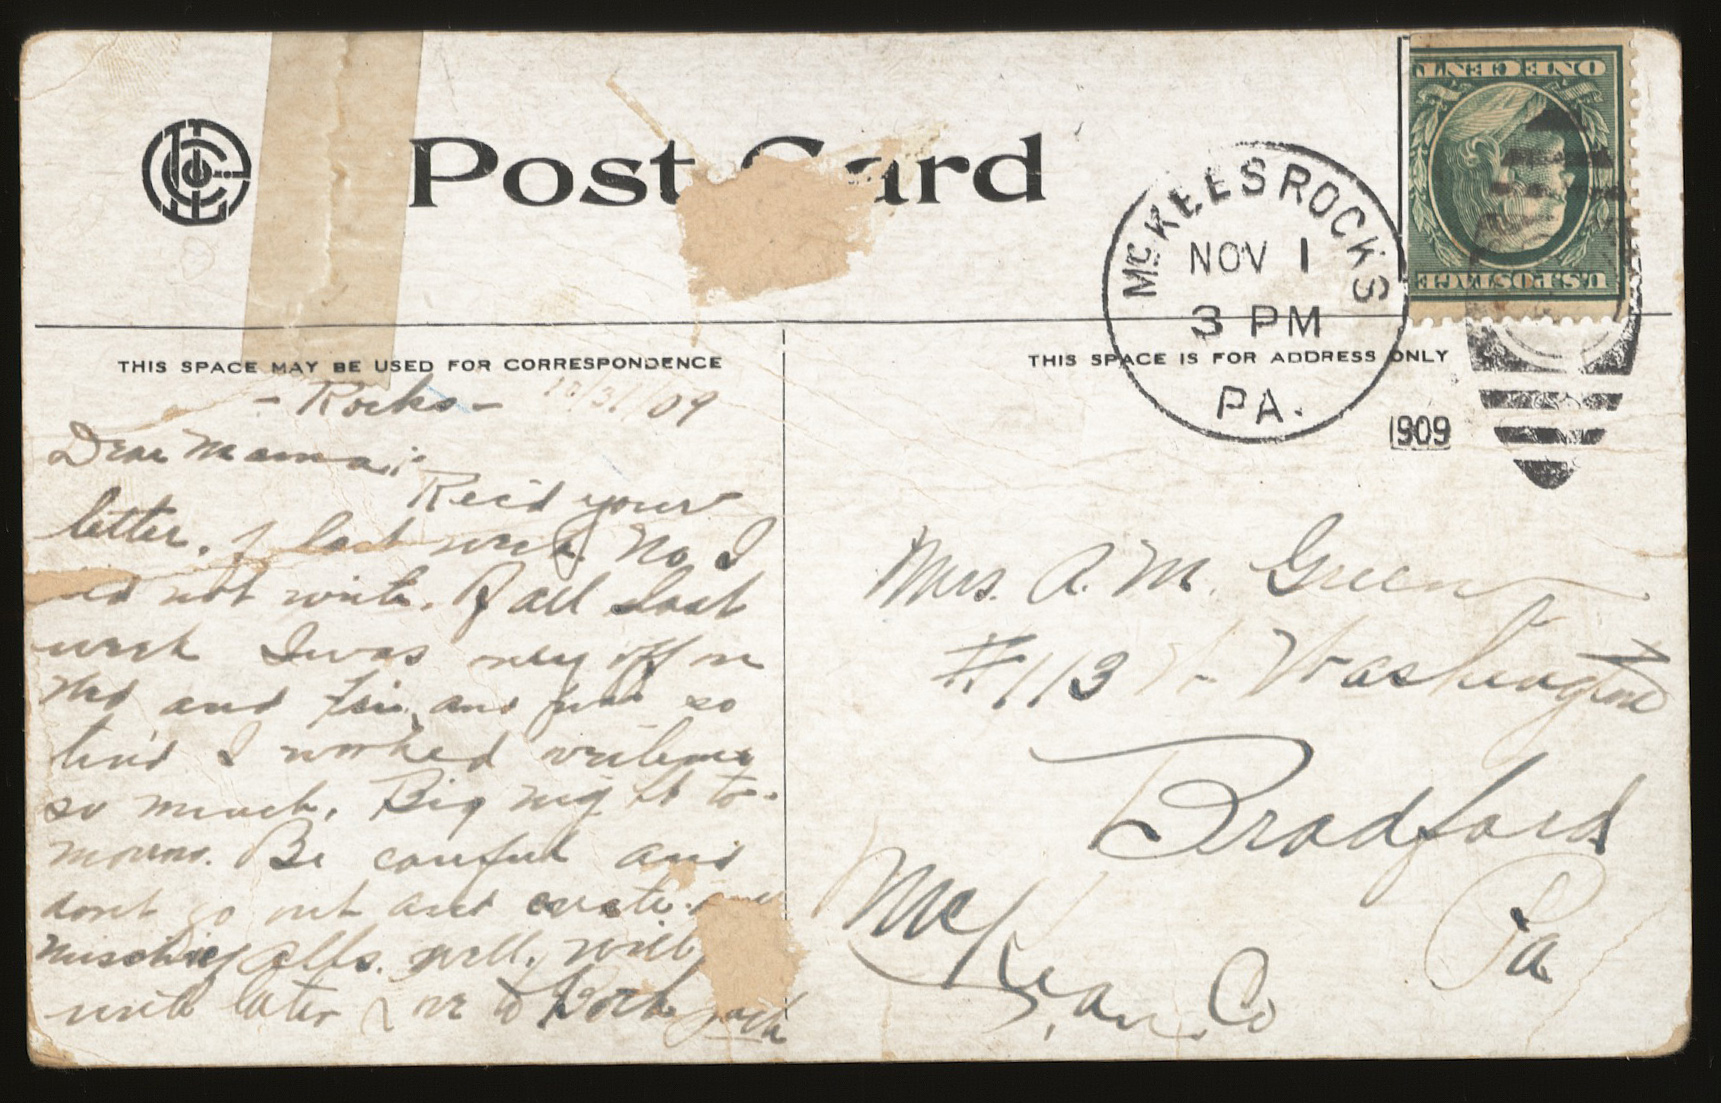 Post Card
THIS SPACE MAY BE USED FOR CORRESPONDENCE
THIS SPACE IS FOR ADDRESS ONLY
McKEES ROCKS
NOV 1
3 PM
PA.
1909
ONE CENT
U.S. POSTAGE
- Rocks - 10/31/09
Dear Mama:-
Rec'd your
letter. of last week. No I
did not write. Of all last
week I was only off on
Wed and Fri, and just so
tir'd I worked
so much. Big night to-
morrow. Be careful and
dont go out and
mischief alfs. Well, will
write later Love to Both Jack
Mrs. A. M. Green
#113 W- Washington
Bradford
McKean Co
Pa